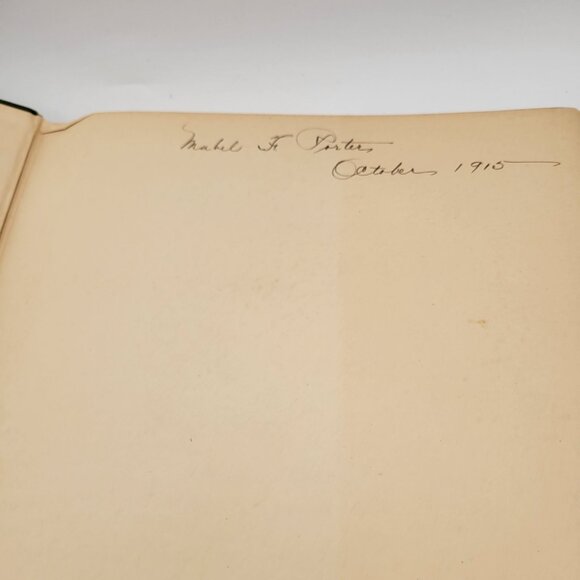 Mabel F. Porter
October 1915